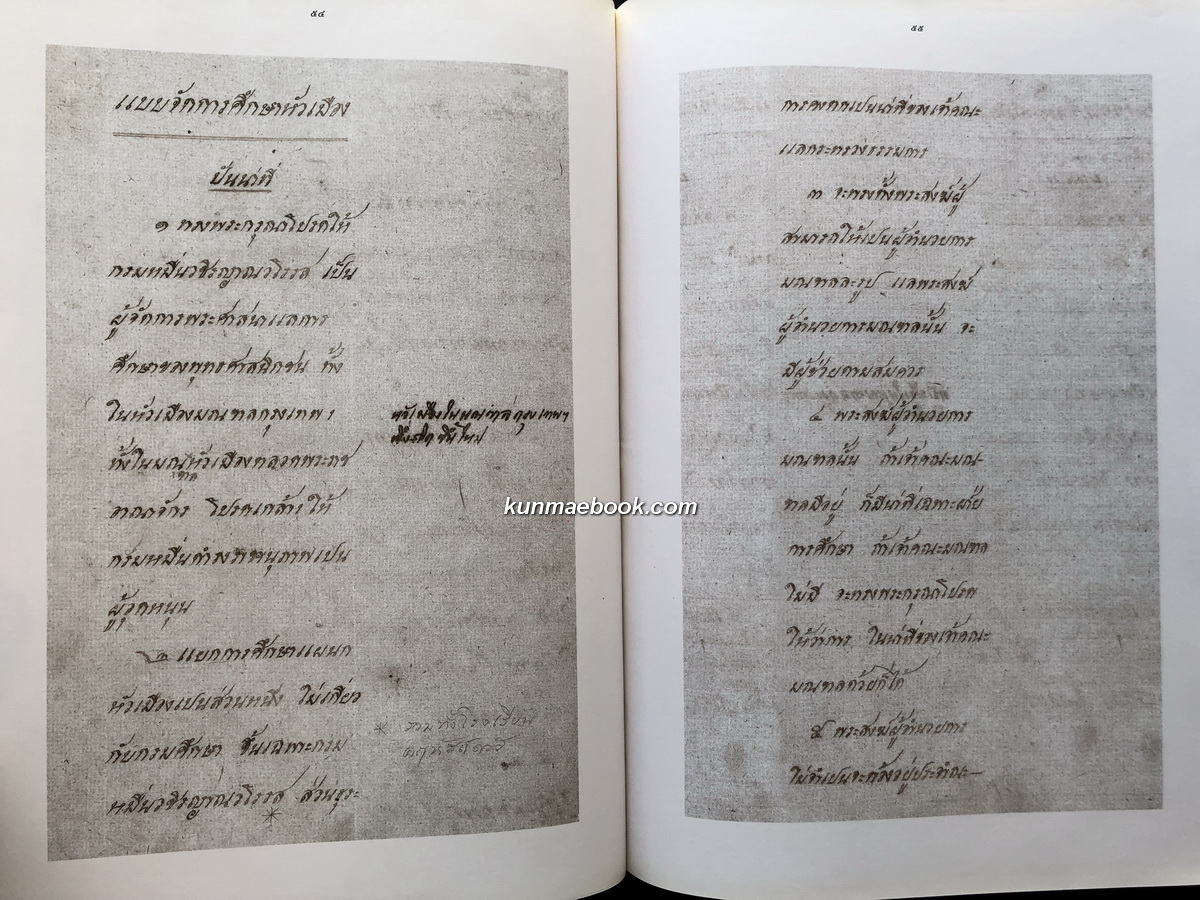 ๕๔
แบบจัดการศึกษาหัวเมือง
ปันน่าที่
๑ ทรงพระกรุณาโปรดให้
กรมหมื่นวชิรญาณวโรรส เป็น
ผู้จัดการพระศาสนาแลการ
ศึกษาของพุทธศาสนิกชน ทั้ง
ในหัวเมืองมณฑลกรุงเทพฯ
ทั้งในมณฑลหัวเมืองตลอดพระราช
อาณาจักร โปรดเกล้าฯ ให้
กรมหมื่นดำรงราชานุภาพเปน
ผู้อุดหนุน
๒ แยกการศึกษาแผนก
หัวเมืองเปนส่วนหนึ่ง ไม่เกี่ยว
กับกรมศึกษา ขึ้นเฉพาะกรม
หมื่นวชิรญาณวโรรส ส่วนธุระ
หัวเมืองในมณฑลกรุงเทพฯ
๕๕
การคงคงเปนน่าที่ของเจ้าคณะ
แลกระทรวงธรรมการ
๓ จะทรงตั้งพระสงฆ์ผู้
สามารถให้เปนผู้อำนวยการ
มณฑลละรูป แลพระสงฆ์
ผู้อำนวยการมณฑลนั้น จะ
มีผู้ช่วยตามสมควร
๔ พระสงฆ์ผู้อำนวยการ
มณฑลนั้น ถ้าเจ้าคณะมณ-
ฑลมีอยู่ ก็มีน่าที่เฉพาะฝ่าย
การศึกษา ถ้าเจ้าคณะมณฑล
ไม่มี จะทรงพระกรุณาโปรด
ให้ว่าการ ในน่าที่ของเจ้าคณะ
มณฑลด้วยก็ได้
๕ พระสงฆ์ผู้อำนวยการ
ไม่จำเปนจะต้องอยู่ประจำณะ-
kunmaebook.com